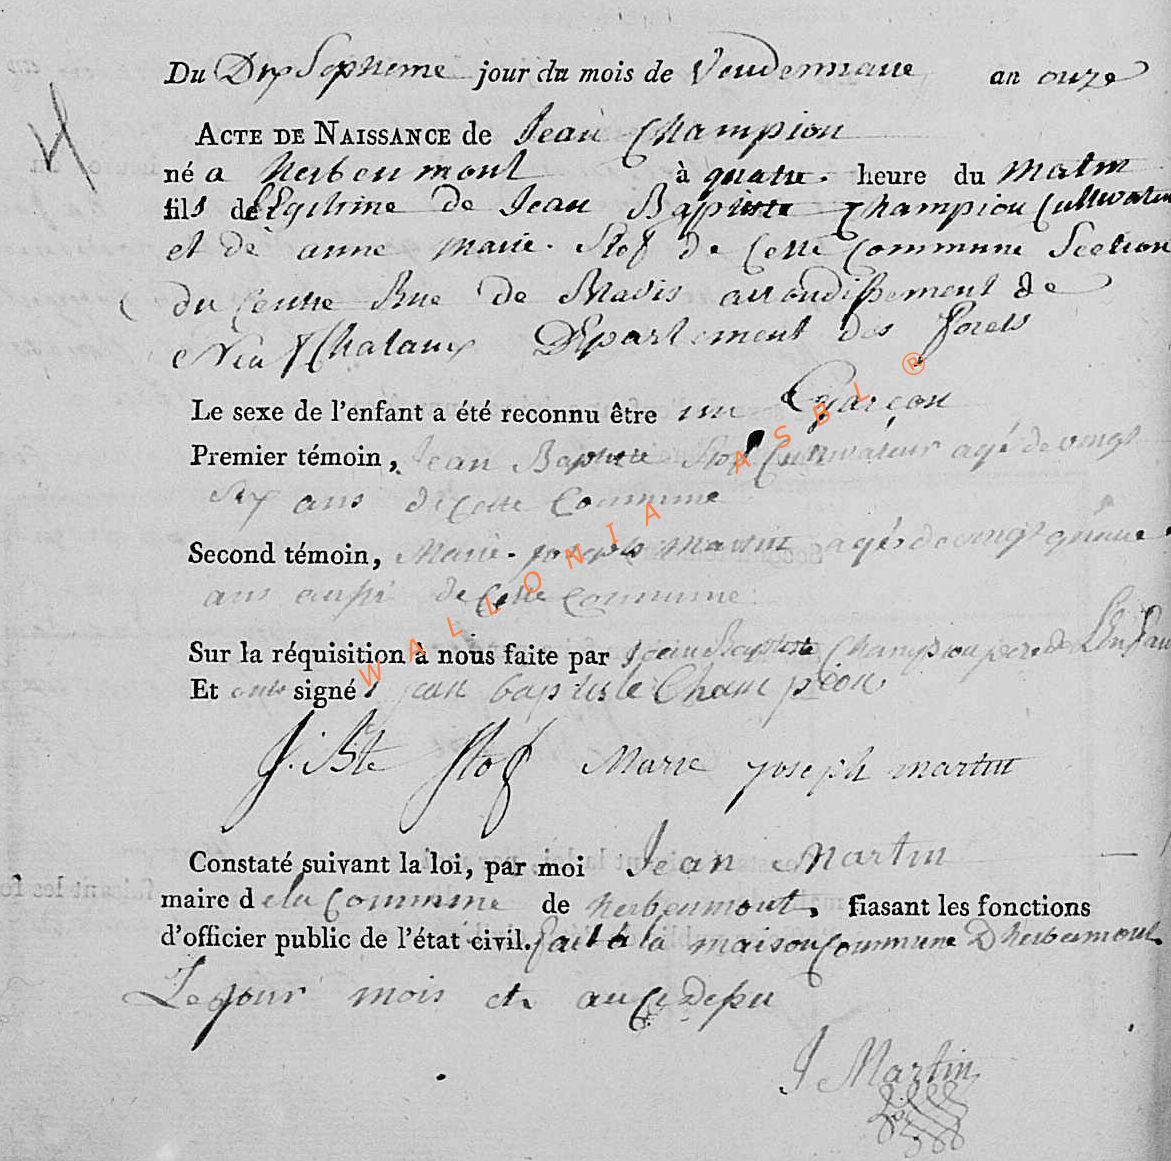 Du Dix Septieme jour du mois de Vendemiaire an onze
ACTE DE NAISSANCE de Jean Champion
né a herbeumont à quatre heure du matin
fils de Legitime de Jean Baptiste Champion Cultivateur
et de anne marie Stof de Cette Commune Section
du Centre Rue de arrondissement de
Neufchateaux Département des forets
Le sexe de l'enfant a été reconnu être un Garçon
Premier témoin, Jean Baptiste Stof Cultivateur agé de vingt
Six ans de Cette Commune
Second témoin, Marie joseph Martin agés de vingt
ans aussi de Cette Commune
Sur la réquisition à nous faite par Jean Baptiste Champion pere de L'Enfant
Et ont signé jean baptiste Champion
J. Bte Stof Marie joseph martin
Constaté suivant la loi, par moi Jean Martin
maire d ela Commune de herbeumont, fiasant les fonctions
d'officier public de l'état civil. fait a la maison Commune D'herbeumont
Le jour mois et an
J Martin
WALLONIA ASBL ®